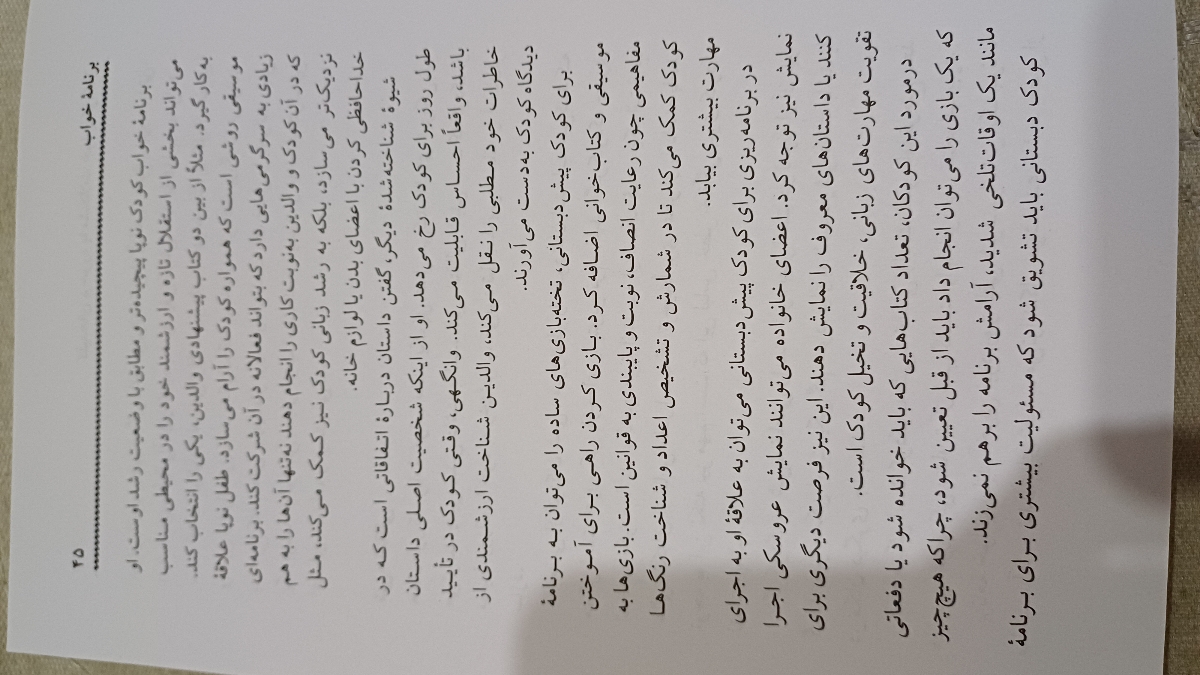 برنامهٔ خواب ۴۵
برنامهٔ خواب کودک نوپا پیچیده‌تر و مطابق با وضعیت رشد اوست. او
می‌تواند بخشی از استقلال تازه و ارزشمند خود را در محیطی مناسب
به‌کار گیرد. مثلاً از بین دو کتاب پیشنهادی والدین، یکی را انتخاب کند.
موسیقی روشی است که همواره کودک را آرام می‌سازد. طفل نوپا علاقهٔ
زیادی به سرگرمی‌هایی دارد که بتواند فعالانه در آن شرکت کند. برنامه‌ای
که در آن کودک و والدین به‌نوبت کاری را انجام دهند نه‌تنها آن‌ها را به هم
نزدیک‌تر می‌سازد، بلکه به رشد زبانی کودک نیز کمک می‌کند، مثل
خداحافظی کردن با اعضای بدن یا لوازم خانه.
شیوهٔ شناخته‌شدهٔ دیگر، گفتن داستان دربارهٔ اتفاقاتی است که در
طول روز برای کودک رخ می‌دهد. او از اینکه شخصیت اصلی داستان
باشد، واقعاً احساس قابلیت می‌کند. وانگهی، وقتی کودک در تأیید
خاطرات خود مطلبی را نقل می‌کند، والدین شناخت ارزشمندی از
دیدگاه کودک به‌دست می‌آورند.
برای کودک پیش‌دبستانی، تخته‌بازی‌های ساده را می‌توان به برنامهٔ
موسیقی و کتاب‌خوانی اضافه کرد. بازی کردن راهی برای آموختن
مفاهیمی چون رعایت انصاف، نوبت و پایبندی به قوانین است. بازی‌ها به
کودک کمک می‌کند تا در شمارش و تشخیص اعداد و شناخت رنگ‌ها
مهارت بیشتری بیابد.
در برنامه‌ریزی برای کودک پیش‌دبستانی می‌توان به علاقهٔ او به اجرای
نمایش نیز توجه کرد. اعضای خانواده می‌توانند نمایش عروسکی اجرا
کنند یا داستان‌های معروف را نمایش دهند. این نیز فرصت دیگری برای
تقویت مهارت‌های زبانی، خلاقیت و تخیل کودک است.
درمورد این کودکان، تعداد کتاب‌هایی که باید خوانده شود یا دفعاتی
که یک بازی را می‌توان انجام داد باید از قبل تعیین شود، چراکه هیچ‌چیز
مانند یک اوقات‌تلخی شدید، آرامش برنامه را برهم نمی‌زند.
کودک دبستانی باید تشویق شود که مسئولیت بیشتری برای برنامهٔ